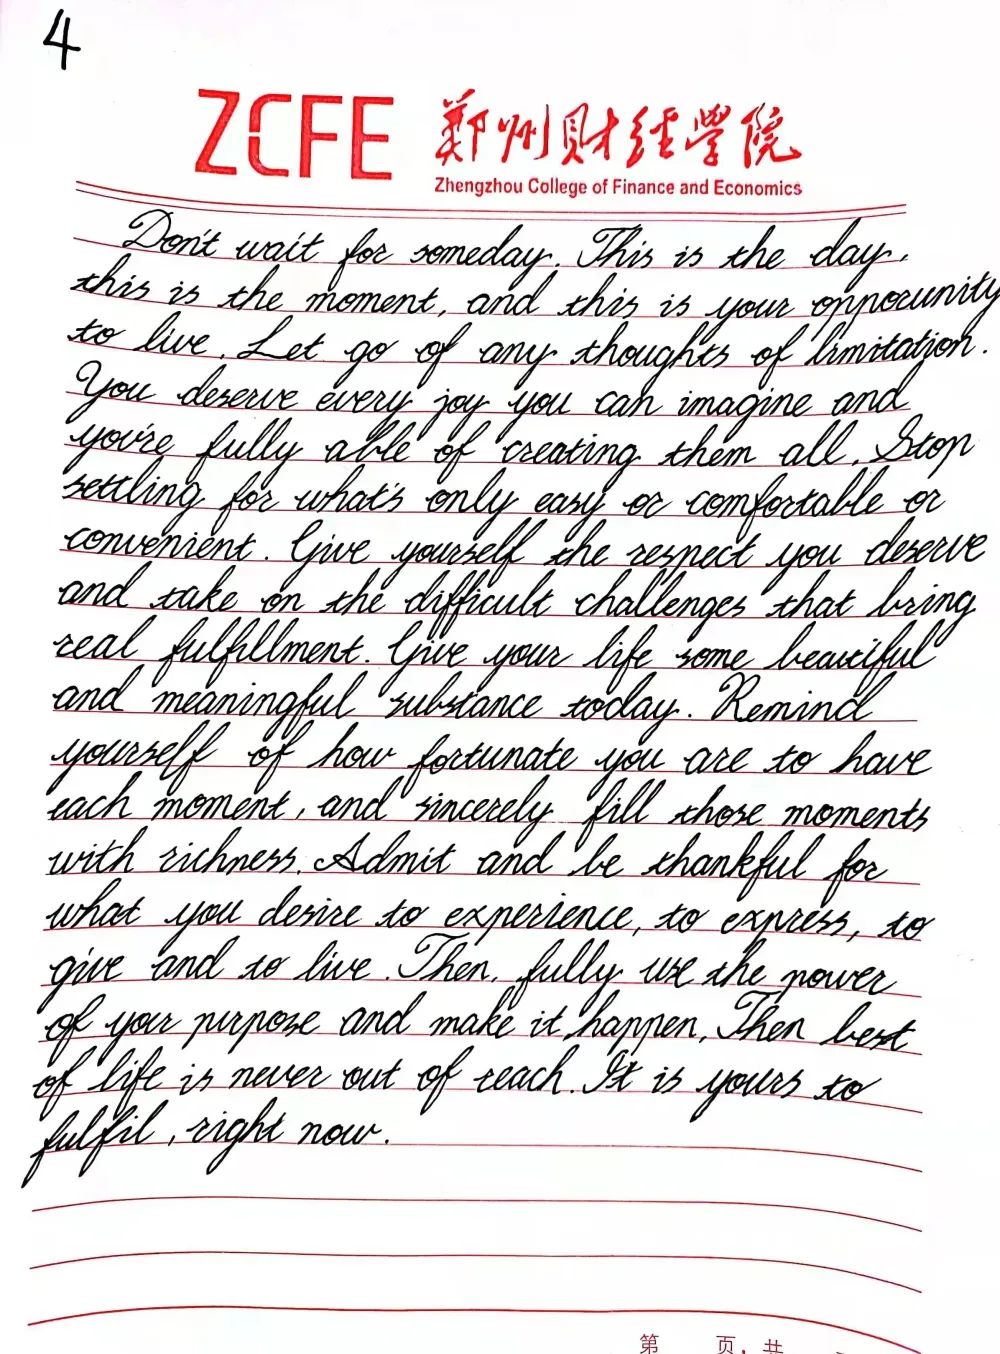 4
ZCFE 郑州财经学院
Zhengzhou College of Finance and Economics
Don't wait for someday. This is the day,
this is the moment, and this is your opporunity
to live. Let go of any thoughts of limitation.
You deserve every joy you can imagine and
you're fully able of creating them all. Stop
settling for what's only easy or comfortable or
convenient. Give yourself the respect you deserve
and take on the difficult challenges that bring
real fulfillment. Give your life some beautiful
and meaningful substance today. Remind
yourself of how fortunate you are to have
each moment, and sincerely fill those moments
with richness. Admit and be thankful for
what you desire to experience, to express, to
give and to live. Then, fully use the power
of your purpose and make it happen. Then best
of life is never out of reach. It is yours to
fulfil, right now.
第 页，共